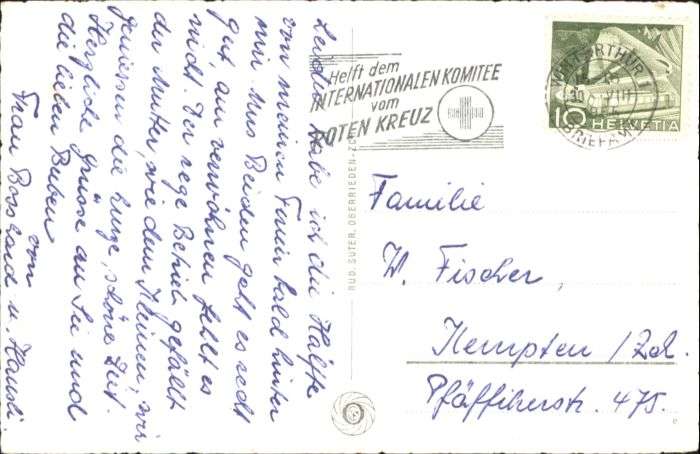 Leider habe ich die Hälfte
von meinen Ferien bald hinter
mir. Uns Beiden geht es recht
gut, am verwöhnen fehlt es
nicht. Der rege Betrieb gefällt
der Mutter, wie dem Kleinen, wir
geniessen die kurze, schöne Zeit.
Herzliche Grüsse an Sie und
die lieben Buben
von
Frau Bosshard u. Hansli.
Helft dem
INTERNATIONALEN KOMITEE
vom
ROTEN KREUZ
WINTERTHUR 1
BRIEFAN
10 HELVETIA
RUD. SUTER, OBERRIEDEN-ZCH
Familie
W. Fischer,
Kempten / Zch.
Pfäffikerstr. 475.